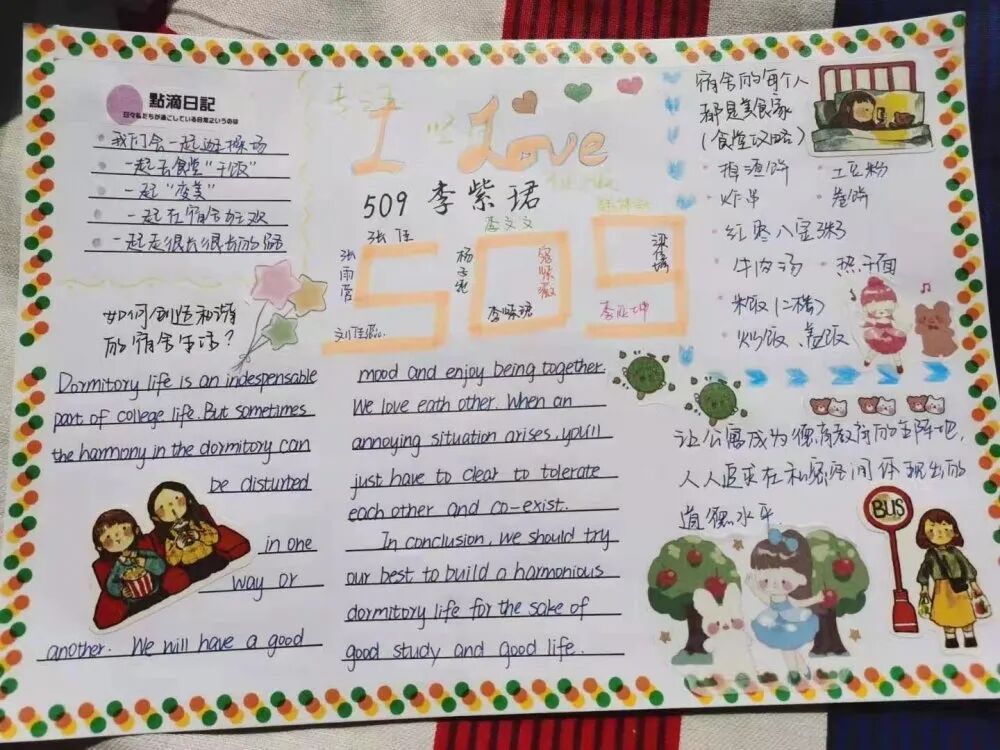 點滴日記
日々私たちが過ごしている日常というのは
我们会一起逛操场
一起去食堂"干饭"
一起"变美"
一起在宿舍狂欢
一起走很长很长的路
I Love
509 李紫珺
李文文
张佳
张雨萱
寇紫薇
509
如何创造和谐
的宿舍生活?
Dormitory life is an indespensable
part of college life. But sometimes
the harmony in the dormitory can
be disturbed
in one
way or
another. We will have a good
mood and enjoy being together.
We love eath other. When an
annoying situation arises, you'll
just have to clear to tolerate
each other and co-exist.
In conclusion, we should try
our best to build a harmonious
dormitory life for the sake of
good study and good life.
宿舍的每个人
都是美食家
(食堂攻略)
掉渣饼
土豆粉
炸串
卷饼
红枣八宝粥
牛肉汤
热干面
米饭(二楼)
炒饭、盖饭
让公寓成为德育教育的主阵地,
人人追求在私密空间体现出的
道德水平
BUS